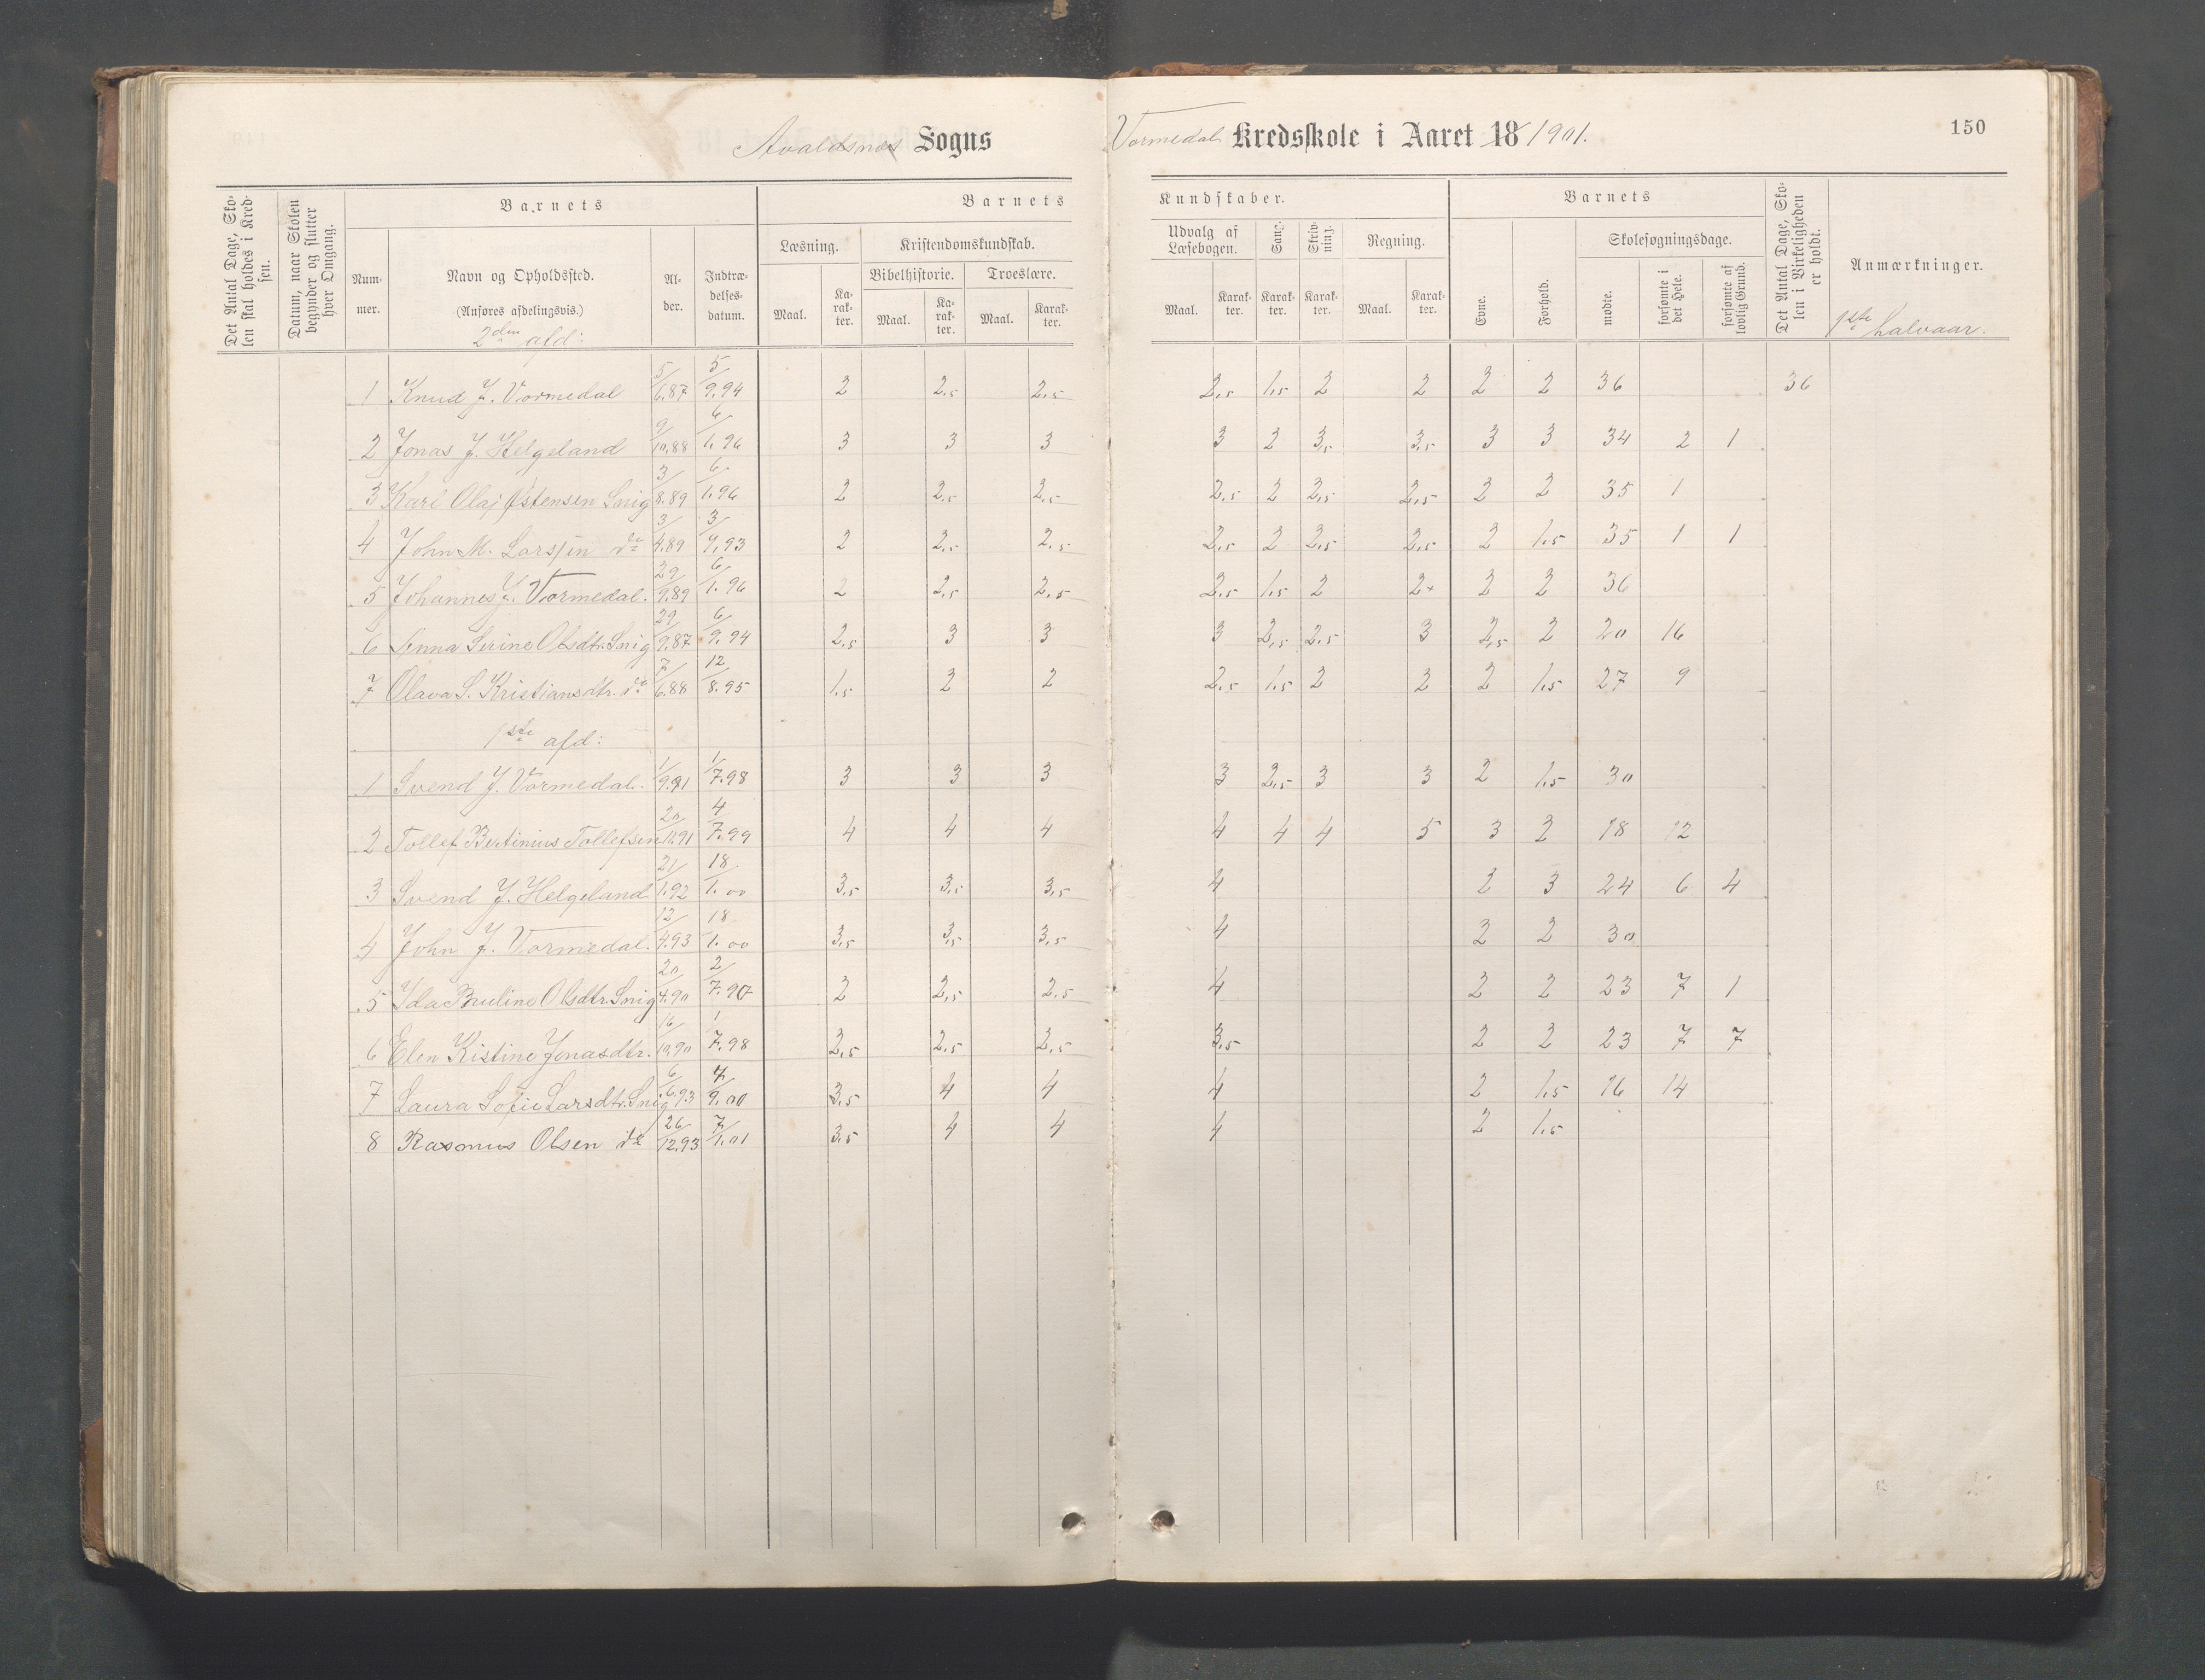 Avaldsnæs Sogns
Vormedal Kredsskole i Aaret 18 1901.
150
Det Antal Dage, Skolen skal holdes i Kredsen.
Datum, naar Skolen begynder og slutter hver Omgang.
Barnets
Nummer.
Navn og Opholdssted.
(Anføres afdelingsvis.)
2den afd:
Alder.
Indtrædelsesdatum.
Barnets
Kundskaber.
Læsning.
Maal.
Karakter.
Kristendomskundskab.
Bibelhistorie.
Maal.
Karakter.
Troeslære.
Maal.
Karakter.
Udvalg af Læsebogen.
Maal.
Karakter.
Sang.
Karakter.
Skrivning.
Karakter.
Regning.
Maal.
Karakter.
Barnets
Evne.
Forhold.
Skolesøgningsdage.
mødte.
forsømte i det Hele.
forsømte af lovlig Grund.
Det Antal Dage, Skolen i Virkeligheden er holdt.
Anmærkninger.
1ste halvaar.
1 Knud J. Vormedal 5/6.87 5/9.94 2 2,5 2,5 2,5 1,5 2 2 2 2 36 36
2 Jonas J. Helgeland 9/10.88 6/1.96 3 3 3 3 2 3,5 3,5 3 3 34 2 1
3 Karl Olaj Østensen Snig 3/8.89 6/1.96 2 2,5 2,5 2,5 2 2,5 2,5 2 2 35 1
4 John M. Larsen do 3/4.89 3/9.93 2 2,5 2,5 2,5 2 2,5 2,5 2 1,5 35 1 1
5 Johannes J. Vormedal. 29/9.89 6/1.96 2 2,5 2,5 2,5 1,5 2 2+ 2 2 36
6 Anna Serine Olsdtr. Snig 29/9.87 6/9.94 2,5 3 3 3 2,5 2,5 3 2,5 2 20 16
7 Olava S. Kristiansdtr. do 7/6.88 12/8.95 1,5 2 2 2,5 1,5 2 2 2 1,5 27 9
1ste afd:
1 Svend J. Vormedal. 1/9.91 1/7.98 3 3 3 3 2,5 3 3 2 1,5 30
2 Tollef Bertinius Tollefsen 20/11.91 4/7.99 4 4 4 4 4 4 5 3 2 18 12
3 Svend J. Helgeland 21/1.92 18/1.00 3,5 3,5 3,5 4 2 3 24 6 4
4 John J. Vormedal. 12/4.93 18/1.00 3,5 3,5 3,5 4 2 2 30
5 Ida Pauline Olsdtr. Snig 20/4.90 2/7.97 2 2,5 2,5 4 2 2 23 7 1
6 Elen Kistine Jonasdtr. 16/10.90 1/7.98 2,5 2,5 2,5 3,5 2 2 23 7 7
7 Laura Sofie Larsdtr. Snig 6/6.93 4/9.00 3,5 4 4 4 2 1,5 16 14
8 Rasmus Olsen do 26/12.93 7/1.01 3,5 4 4 4 2 1,5